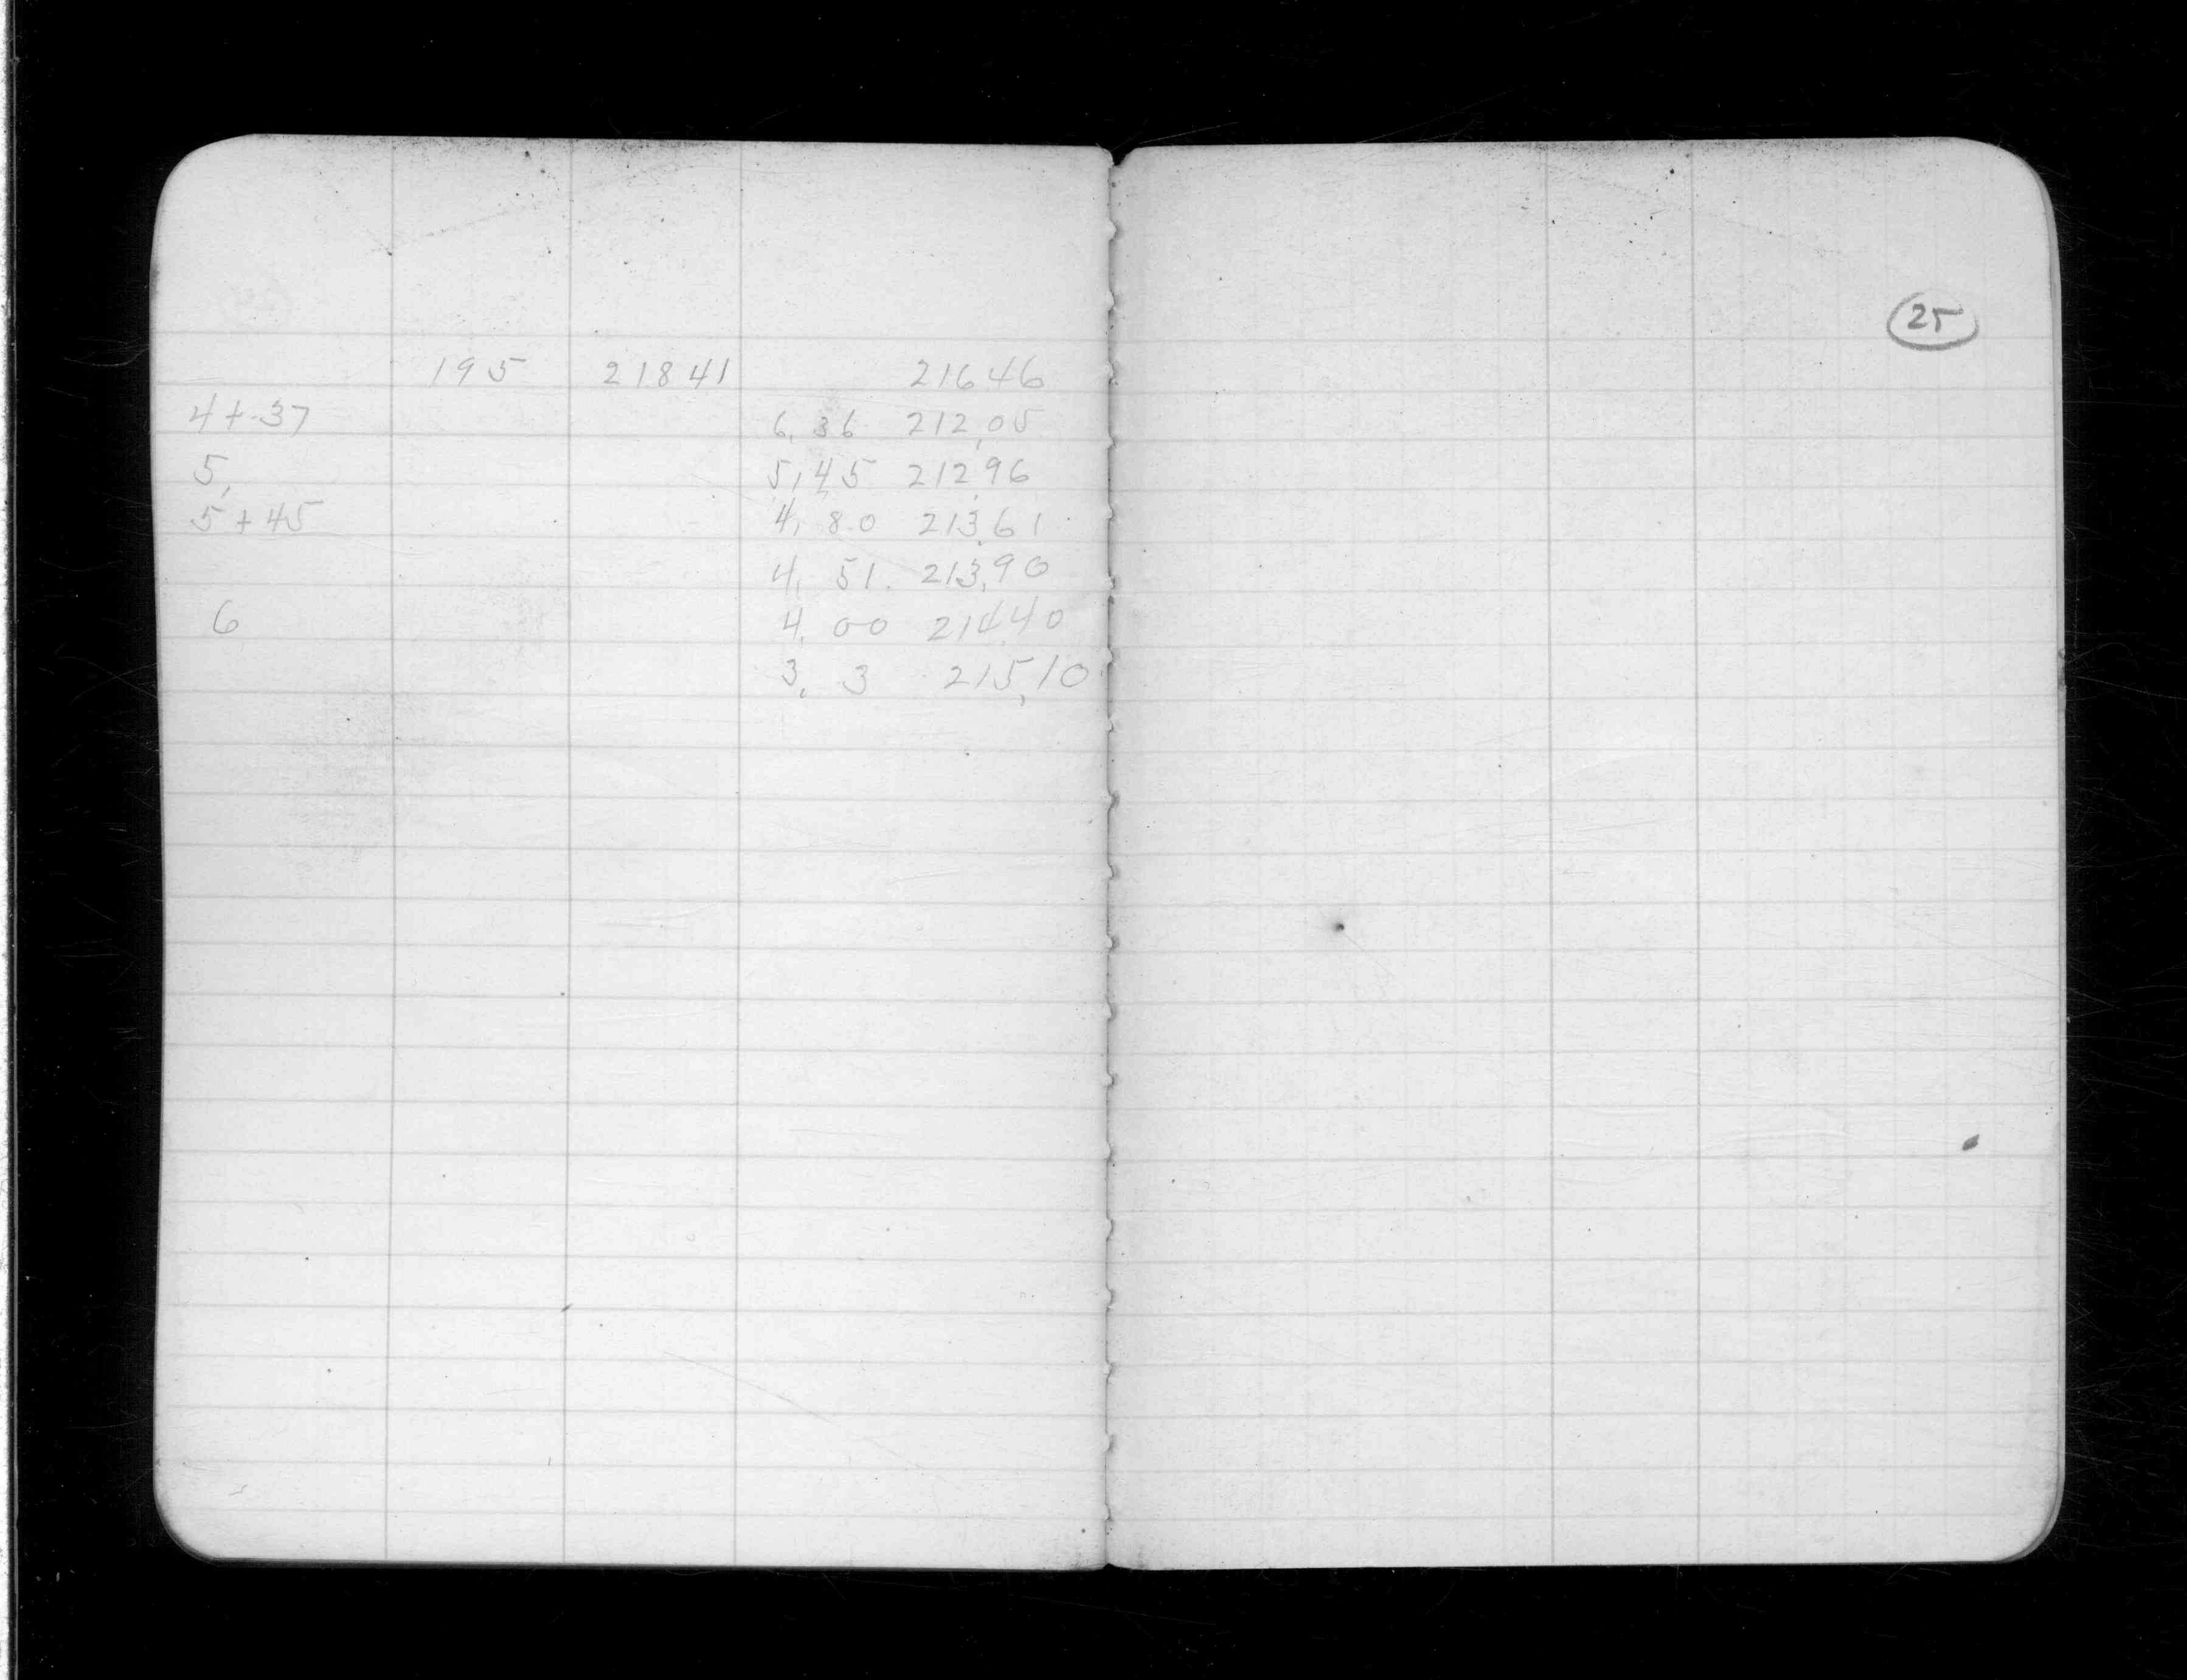 195 21841 21646
4+37 6.36 212.05
5, 5,45 212.96
5+45 4.80 213.61
4.51. 213.90
6 4.00 214.40
3. 3 215,10
25